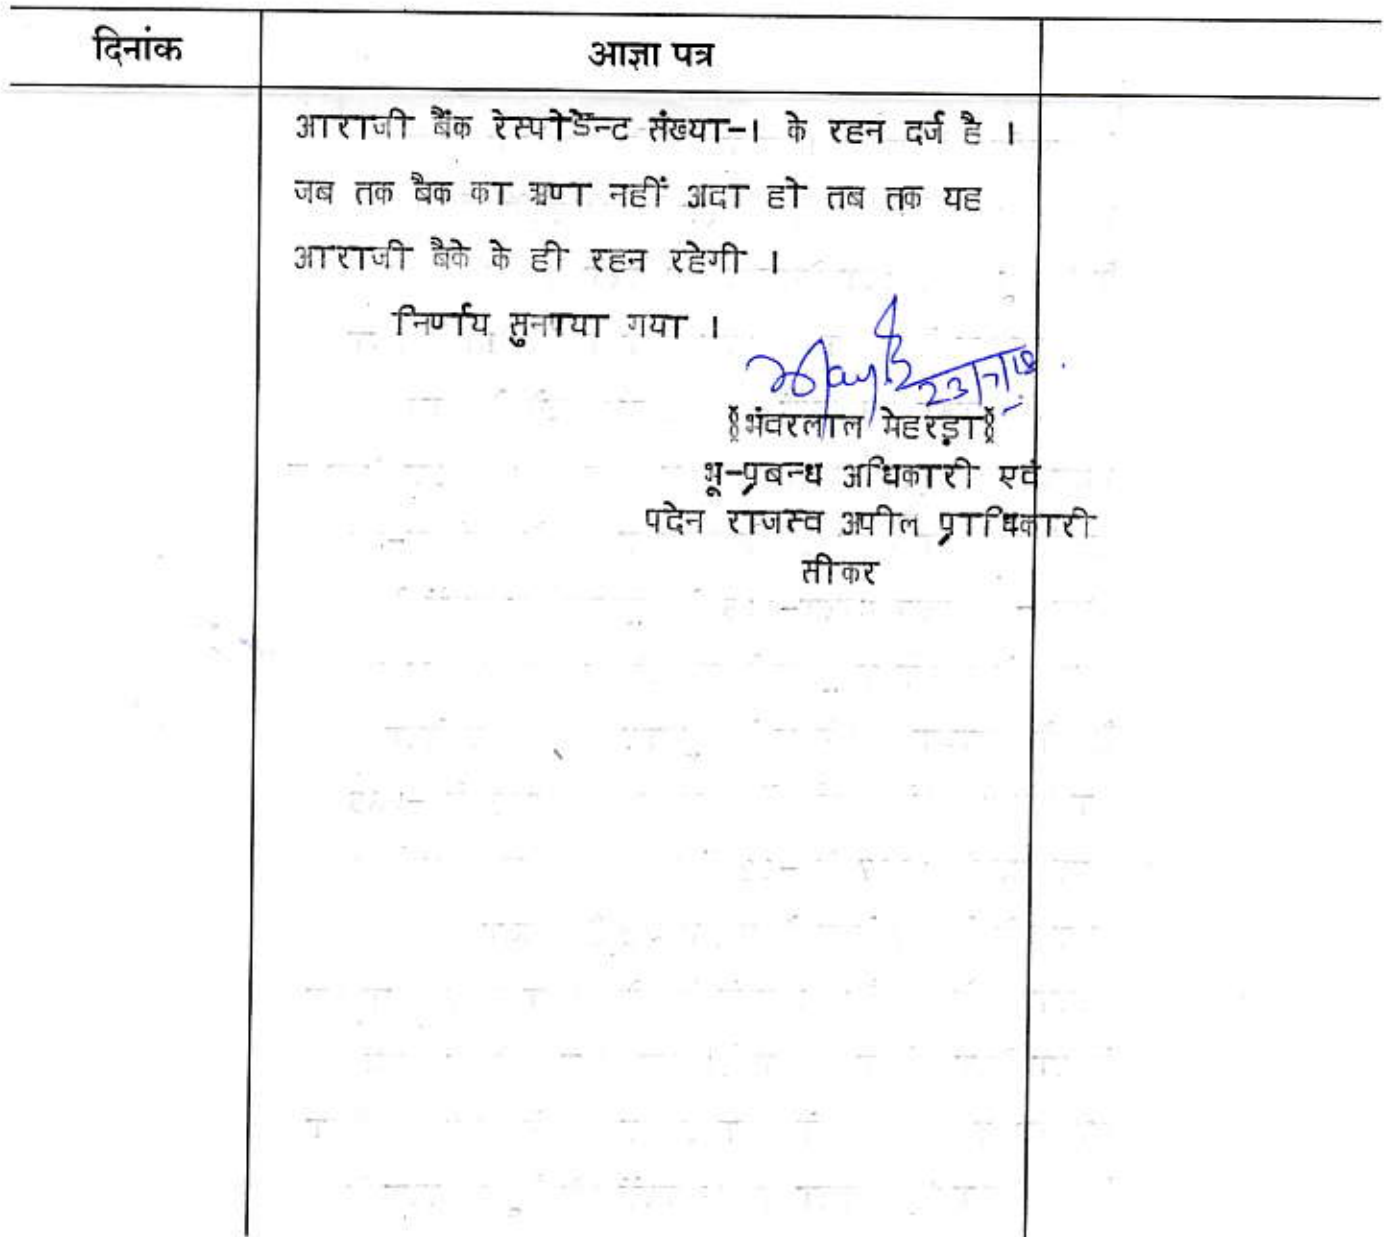 दिनांक
आज्ञा पत्र
आराजी बैंक रेस्पोडेन्ट संख्या-1 के रहन दर्ज है ।
जब तक बैक का ऋण नहीं अदा हो तब तक यह
आराजी बैके के ही रहन रहेगी ।
निर्णय सुनाया गया ।
23/7/18
भंवरलाल मेहरड़ा
भू-प्रबन्ध अधिकारी एवं
पदेन राजस्व अपील प्राधिकारी
सीकर